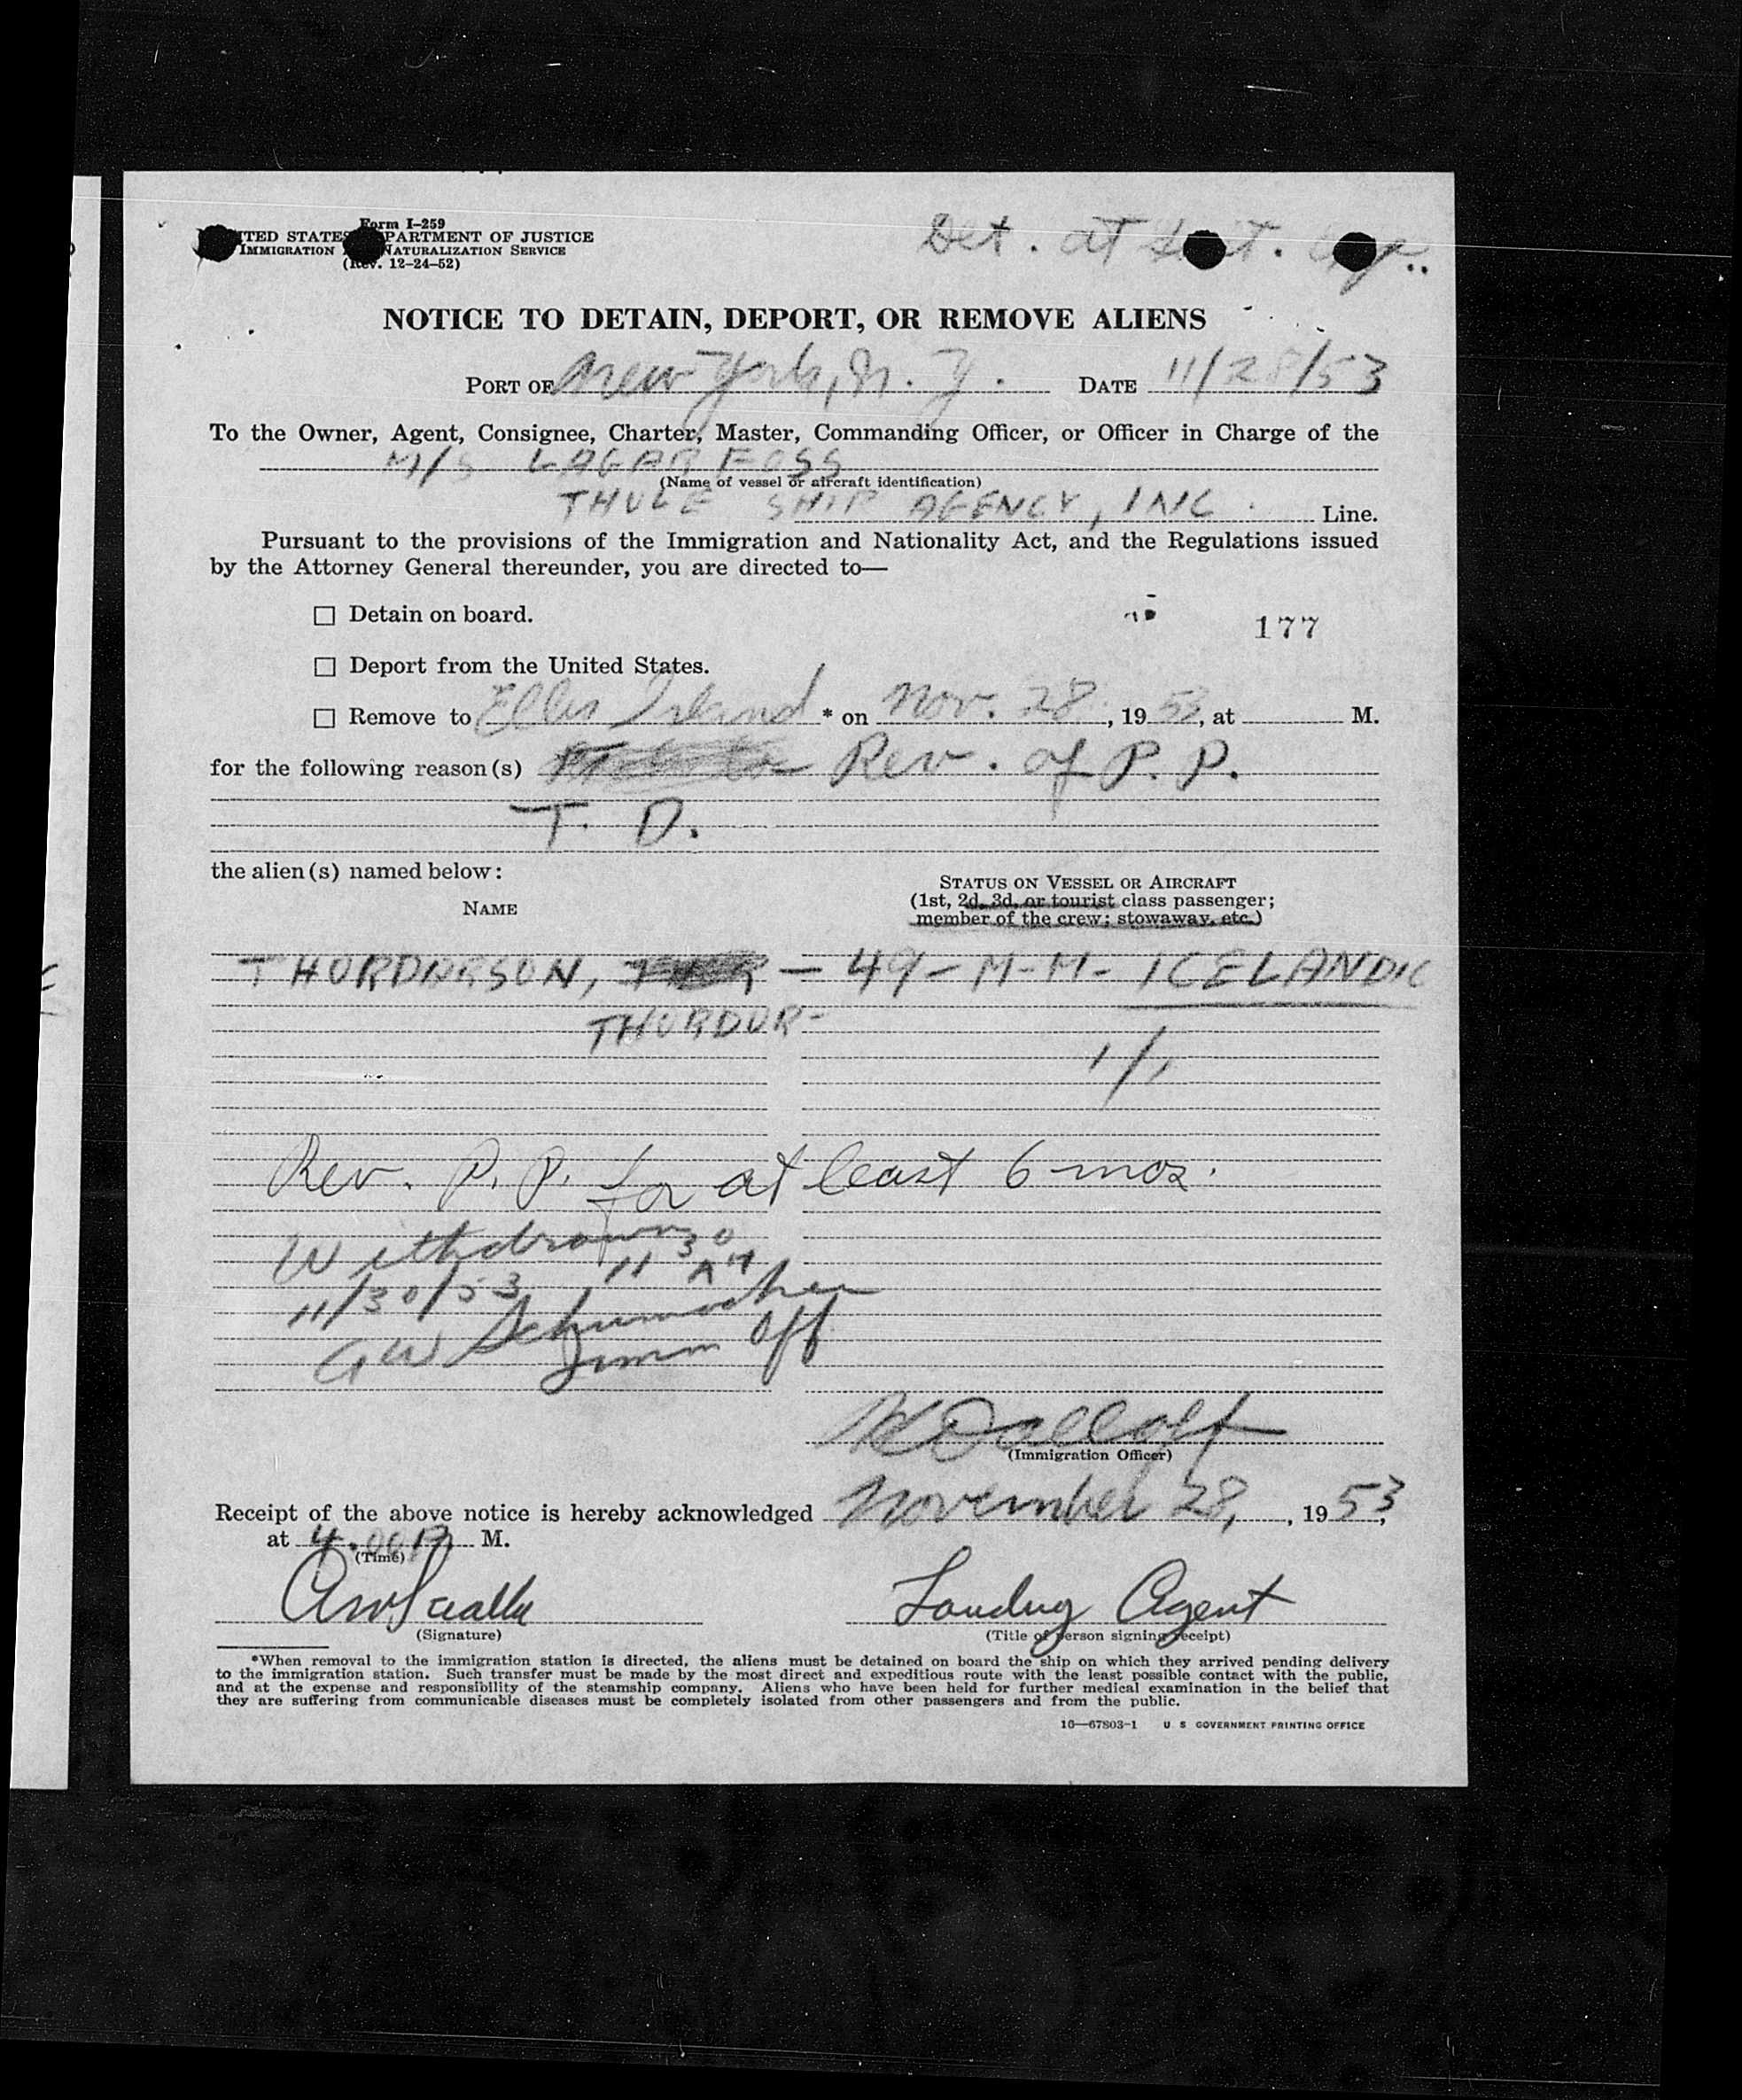 Form I-259
UNITED STATES DEPARTMENT OF JUSTICE
IMMIGRATION NATURALIZATION SERVICE
(Rev. 12-24-52)
Det. at
NOTICE TO DETAIN, DEPORT, OR REMOVE ALIENS
PORT OF New York, N. Y. DATE 11/28/53
To the Owner, Agent, Consignee, Charter, Master, Commanding Officer, or Officer in Charge of the
M/S LAGARFOSS
(Name of vessel or aircraft identification)
THULE SHIP AGENCY, INC. Line.
Pursuant to the provisions of the Immigration and Nationality Act, and the Regulations issued
by the Attorney General thereunder, you are directed to—
☐ Detain on board.
177
☐ Deport from the United States.
☐ Remove to Ellis Island * on Nov. 28, 1953, at M.
for the following reason(s) Rev. of P. P.
T. D.
the alien(s) named below:
STATUS ON VESSEL OR AIRCRAFT
(1st, 2d, 3d, or tourist class passenger;
member of the crew; stowaway, etc.)
NAME
THORDARSON, — 49 - M-M- ICELANDIC
THORDUR-
1/1
Rev. P. P. for at least 6 mos.
Withdrawn
11 30 AM
11/30/53
GW Schumacher
Imm Off
(Immigration Officer)
Receipt of the above notice is hereby acknowledged November 28, 1953,
at 4.00 P. M.
(Time)
Landing Agent
(Signature)
(Title of person signing receipt)
*When removal to the immigration station is directed, the aliens must be detained on board the ship on which they arrived pending delivery
to the immigration station. Such transfer must be made by the most direct and expeditious route with the least possible contact with the public,
and at the expense and responsibility of the steamship company. Aliens who have been held for further medical examination in the belief that
they are suffering from communicable diseases must be completely isolated from other passengers and from the public.
16—67803-1 U. S. GOVERNMENT PRINTING OFFICE